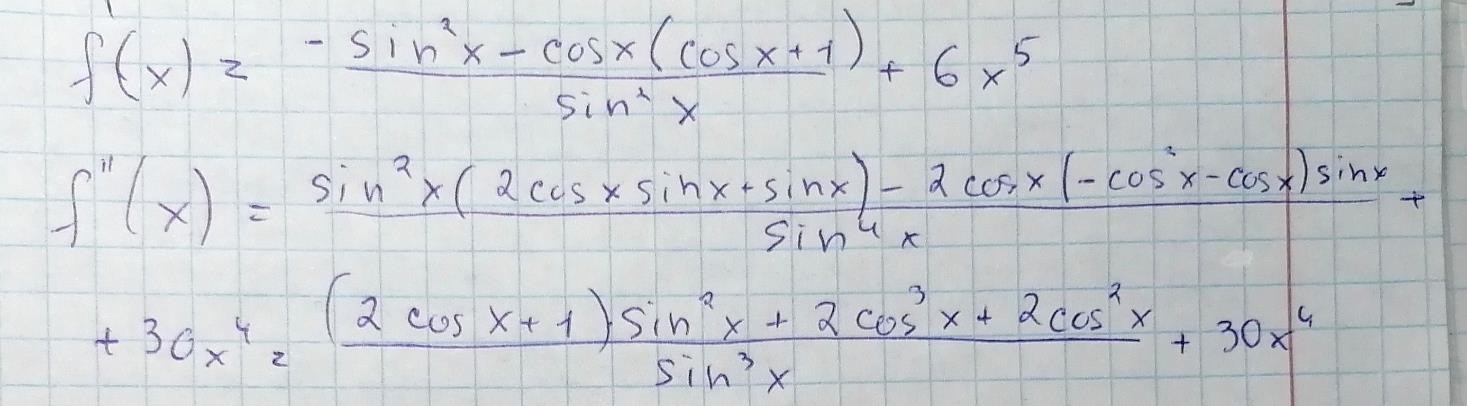 f'(x) = (-sin²x - cosx(cosx+1))/(sin²x) + 6x⁵
f''(x) = (sin²x(2cosxsinx+sinx) - 2cosx(-cos²x-cosx)sinx)/(sin⁴x) +
+ 30x⁴ = ((2cosx+1)sin²x + 2cos³x + 2cos²x)/(sin³x) + 30x⁴